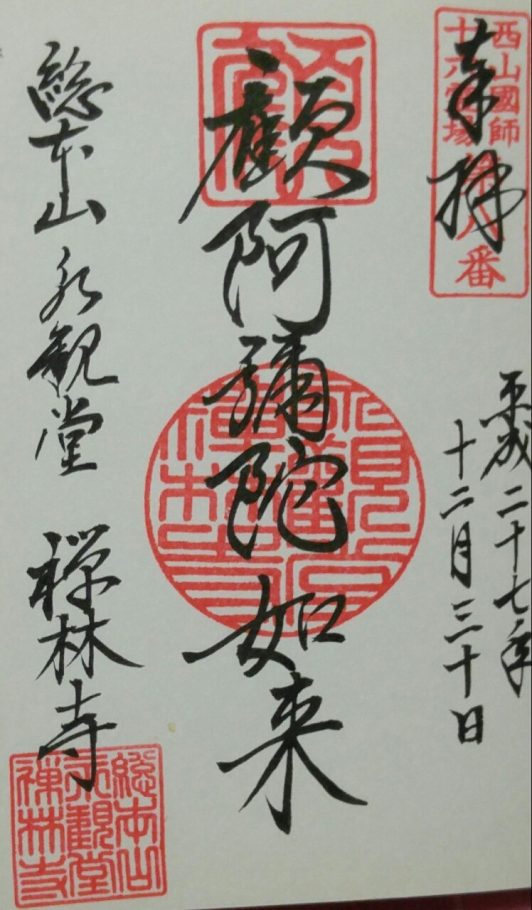 奉拝
西山國師
十六霊場
第八番
平成二十七年
十二月三十日
顧阿彌陀如来
總本山 永観堂 禅林寺
総本山
永觀堂
禅林寺